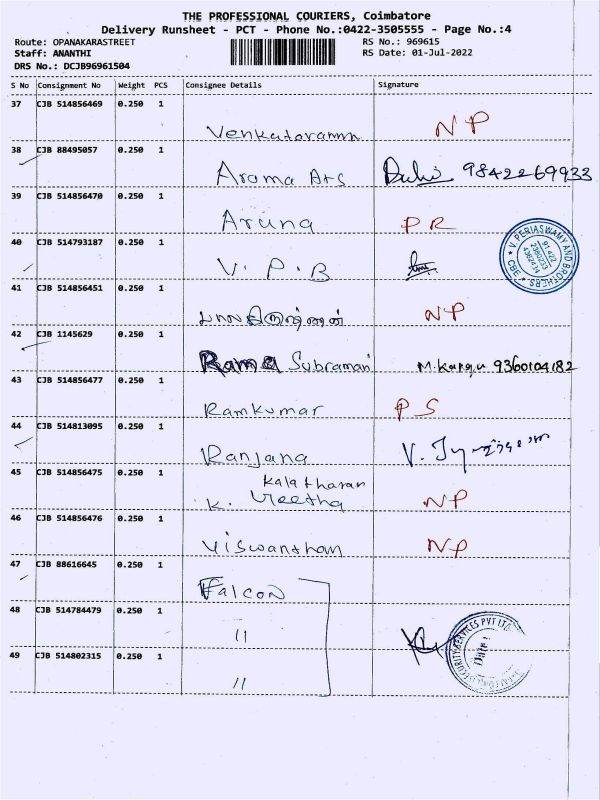 THE PROFESSIONAL COURIERS, Coimbatore
Delivery Runsheet - PCT - Phone No.:0422-3505555 - Page No.:4
Route: OPANAKARASTREET RS No.: 969615
Staff: ANANTHI RS Date: 01-Jul-2022
DRS No.: DCJB96961504
S No Consignment No Weight PCS Consignee Details Signature
37 CJB 514856469 0.250 1
Venkatoraman NP
38 CJB 88495057 0.250 1
Aroma Ats 9842269933
39 CJB 514856470 0.250 1
Aruna PR
40 CJB 514793187 0.250 1
V.P.B
V. PERIASWAMY AND BROTHERS
CBE
41 CJB 514856451 0.250 1
NP
42 CJB 1145629 0.250 1
Rama Subramani 9360104182
43 CJB 514856477 0.250 1
Ramkumar PS
44 CJB 514813095 0.250 1
Ranjana V.
45 CJB 514856475 0.250 1
Kalatharan
K. Geetha NP
46 CJB 514856476 0.250 1
Viswanthan NP
47 CJB 88616645 0.250 1
Falcon
48 CJB 514784479 0.250 1
11
SECURITY SERVICES PVT LTD
Date :
49 CJB 514802315 0.250 1
11